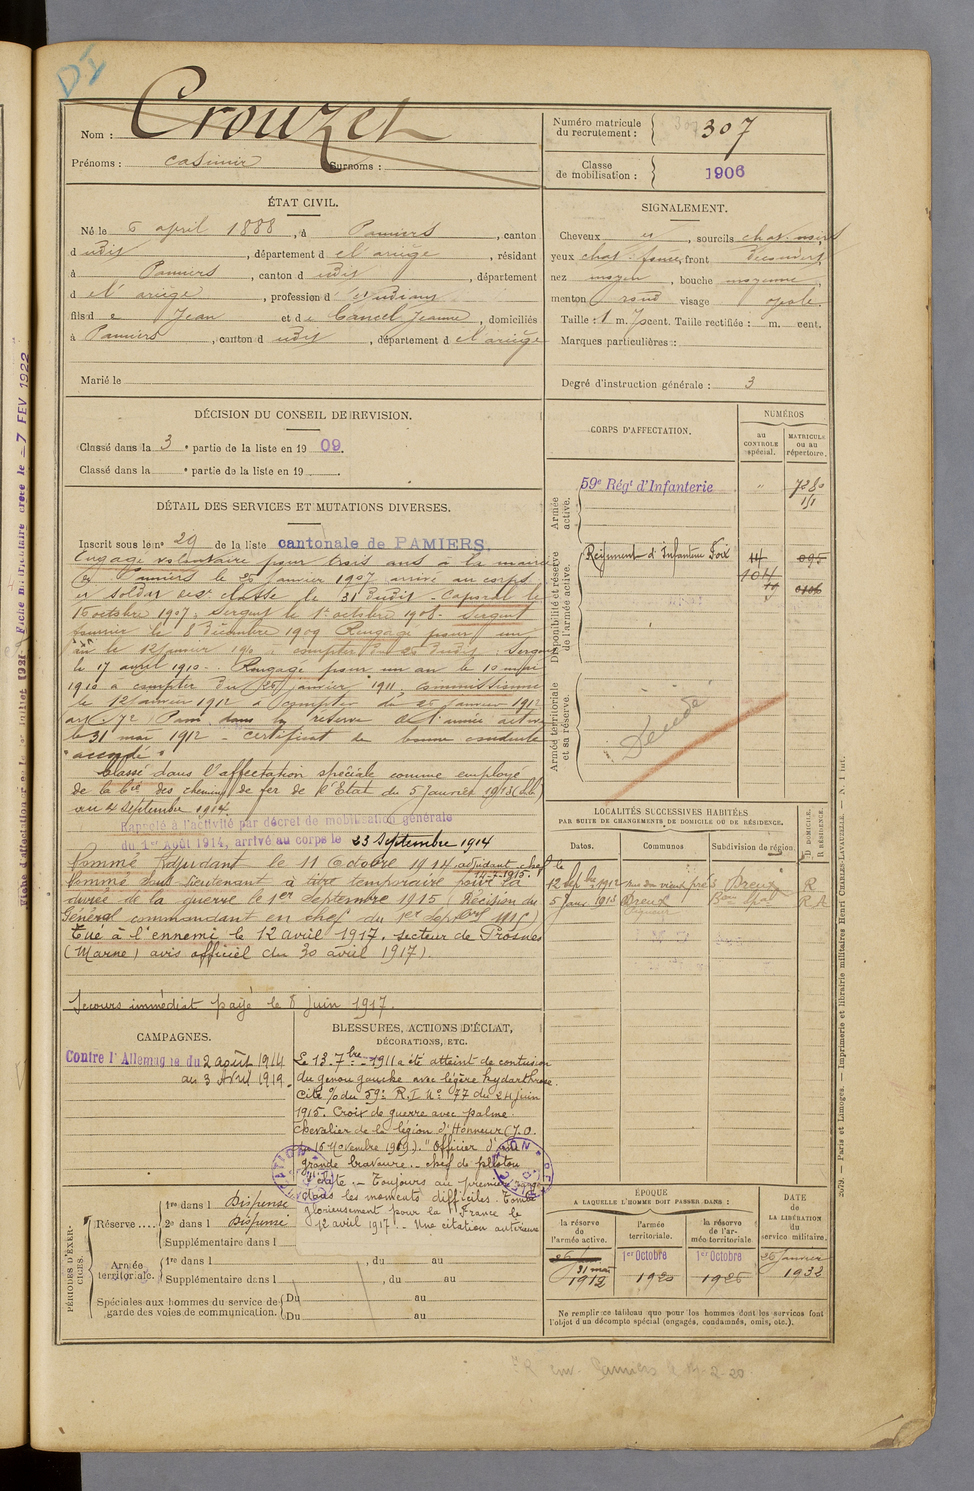 DI
Nom : Crouzet
Prénoms : Casimir Surnoms :
Numéro matricule du recrutement : 307
Classe de mobilisation : 1906
ÉTAT CIVIL.
Né le 6 april 1888, à Pamiers, canton
d udit, département d el ariège, résidant
à Pamiers, canton d udit, département
d el' ariège, profession d
fils d e Jean et d e Cancel Jeanne, domiciliés
à Pamiers, canton d udit, département d el ariège
Marié le
SIGNALEMENT.
Cheveux, sourcils chat. noirs
yeux chat. foncé, front découvert,
nez moyen, bouche moyenne,
menton rond visage ovale.
Taille : 1 m. cent. Taille rectifiée : m. cent.
Marques particulières :
Degré d'instruction générale : 3
DÉCISION DU CONSEIL DE REVISION.
Classé dans la 3e partie de la liste en 1909.
Classé dans la e partie de la liste en 19
DÉTAIL DES SERVICES ET MUTATIONS DIVERSES.
Inscrit sous le n° 29 de la liste cantonale de PAMIERS.
Engagé volontaire pour trois ans à la mairie
de Pamiers le 25 janvier 1907 arrivé au corps
et soldat de 2e classe le 31 dudit - Caporal le
16 octobre 1907. Sergent le 1er octobre 1908. Sergent
fourrier le 8 décembre 1909 Rengagé pour un
an le 12 janvier 1910 à compter du 25 dudit. Sergent
le 17 avril 1910. Rengagé pour un an le 10 mai
1910 à compter du 25 janvier 1911, commissionné
le 12 janvier 1912 à compter du 25 janvier 1912
Passé dans la réserve de l'armée active
le 31 mai 1912 - certificat de bonne conduite
"accordé"
Classé dans l'affectation spéciale comme employé
de la Cie des chemins de fer de l'Etat du 5 janvier 1913
au 4 septembre 1914.
Rappelé à l'activité par décret de mobilisation générale
du 1er Août 1914, arrivé au corps le 23 septembre 1914
Nommé Adjudant le 11 Octobre 1914. adjudant chef le
14-7-1915.
Nommé sous-lieutenant à titre temporaire pour la
durée de la guerre le 1er septembre 1915 (Décision du
Général commandant en chef du 1er septbre 1915)
Tué à l'ennemi le 12 avril 1917. secteur de Prosnes
(Marne) avis officiel du 30 avril 1917).
Secours immédiat payé le 8 juin 1917.
CORPS D'AFFECTATION.
NUMÉROS
au contrôle spécial.
matricule ou au répertoire.
Armée active.
59e Régt d'Infanterie " 7280
Disponibilité et réserve de l'armée active.
Régiment d'Infanterie Foix
Armée territoriale et sa réserve.
Décédé
LOCALITÉS SUCCESSIVES HABITÉES
PAR SUITE DE CHANGEMENTS DE DOMICILE OU DE RÉSIDENCE.
Dates. Communes Subdivision de région. D domicile, R résidence.
12 Sept bre 1912 rue du vieux pré 3 Dreux R
5 Janv 1913 Dreux R
CAMPAGNES.
Contre l'Allemagne du 2 août 1914
au 3 Avril 1919.
BLESSURES, ACTIONS D'ÉCLAT,
DÉCORATIONS, ETC.
Le 13. 7bre 1911 a été atteint de contusion
du genou gauche avec légère hydarthrose.
Cité % du 59e R.I. N° 77 du 24 juin
1915. Croix de guerre avec palme.
Chevalier de la légion d'Honneur (J.O.
16 Novembre 1919). "Officier d'une
grande bravoure. - chef de peloton
d'élite - Toujours au premier rang
dans les moments difficiles. Tombé
glorieusement pour la France le
12 avril 1917. - Une citation antérieure
PÉRIODES D'EXERCICES.
Réserve....
1re dans l Dispensé
2e dans l Dispensé
Supplémentaire dans l
Armée territoriale.
1re dans l , du au
Supplémentaire dans l , du au
Spéciales aux hommes du service de garde des voies de communication.
Du au
Du au
ÉPOQUE
À LAQUELLE L'HOMME DOIT PASSER DANS :
la réserve de l'armée active.
l'armée territoriale.
la réserve de l'armée territoriale.
DATE DE LA LIBÉRATION du service militaire.
31 mai 1912
1er Octobre 1920
1er Octobre 1926
26 Janvier 1932
Ne remplir ce tableau que pour les hommes dont les services font
l'objet d'un décompte spécial (engagés, condamnés, omis, etc.).
Pamiers le 14-2-20
Fiche matriculaire créée le -7 FEV 1922
2679. — Paris et Limoges. — Imprimerie et librairie militaires Henri CHARLES-LAVAUZELLE.